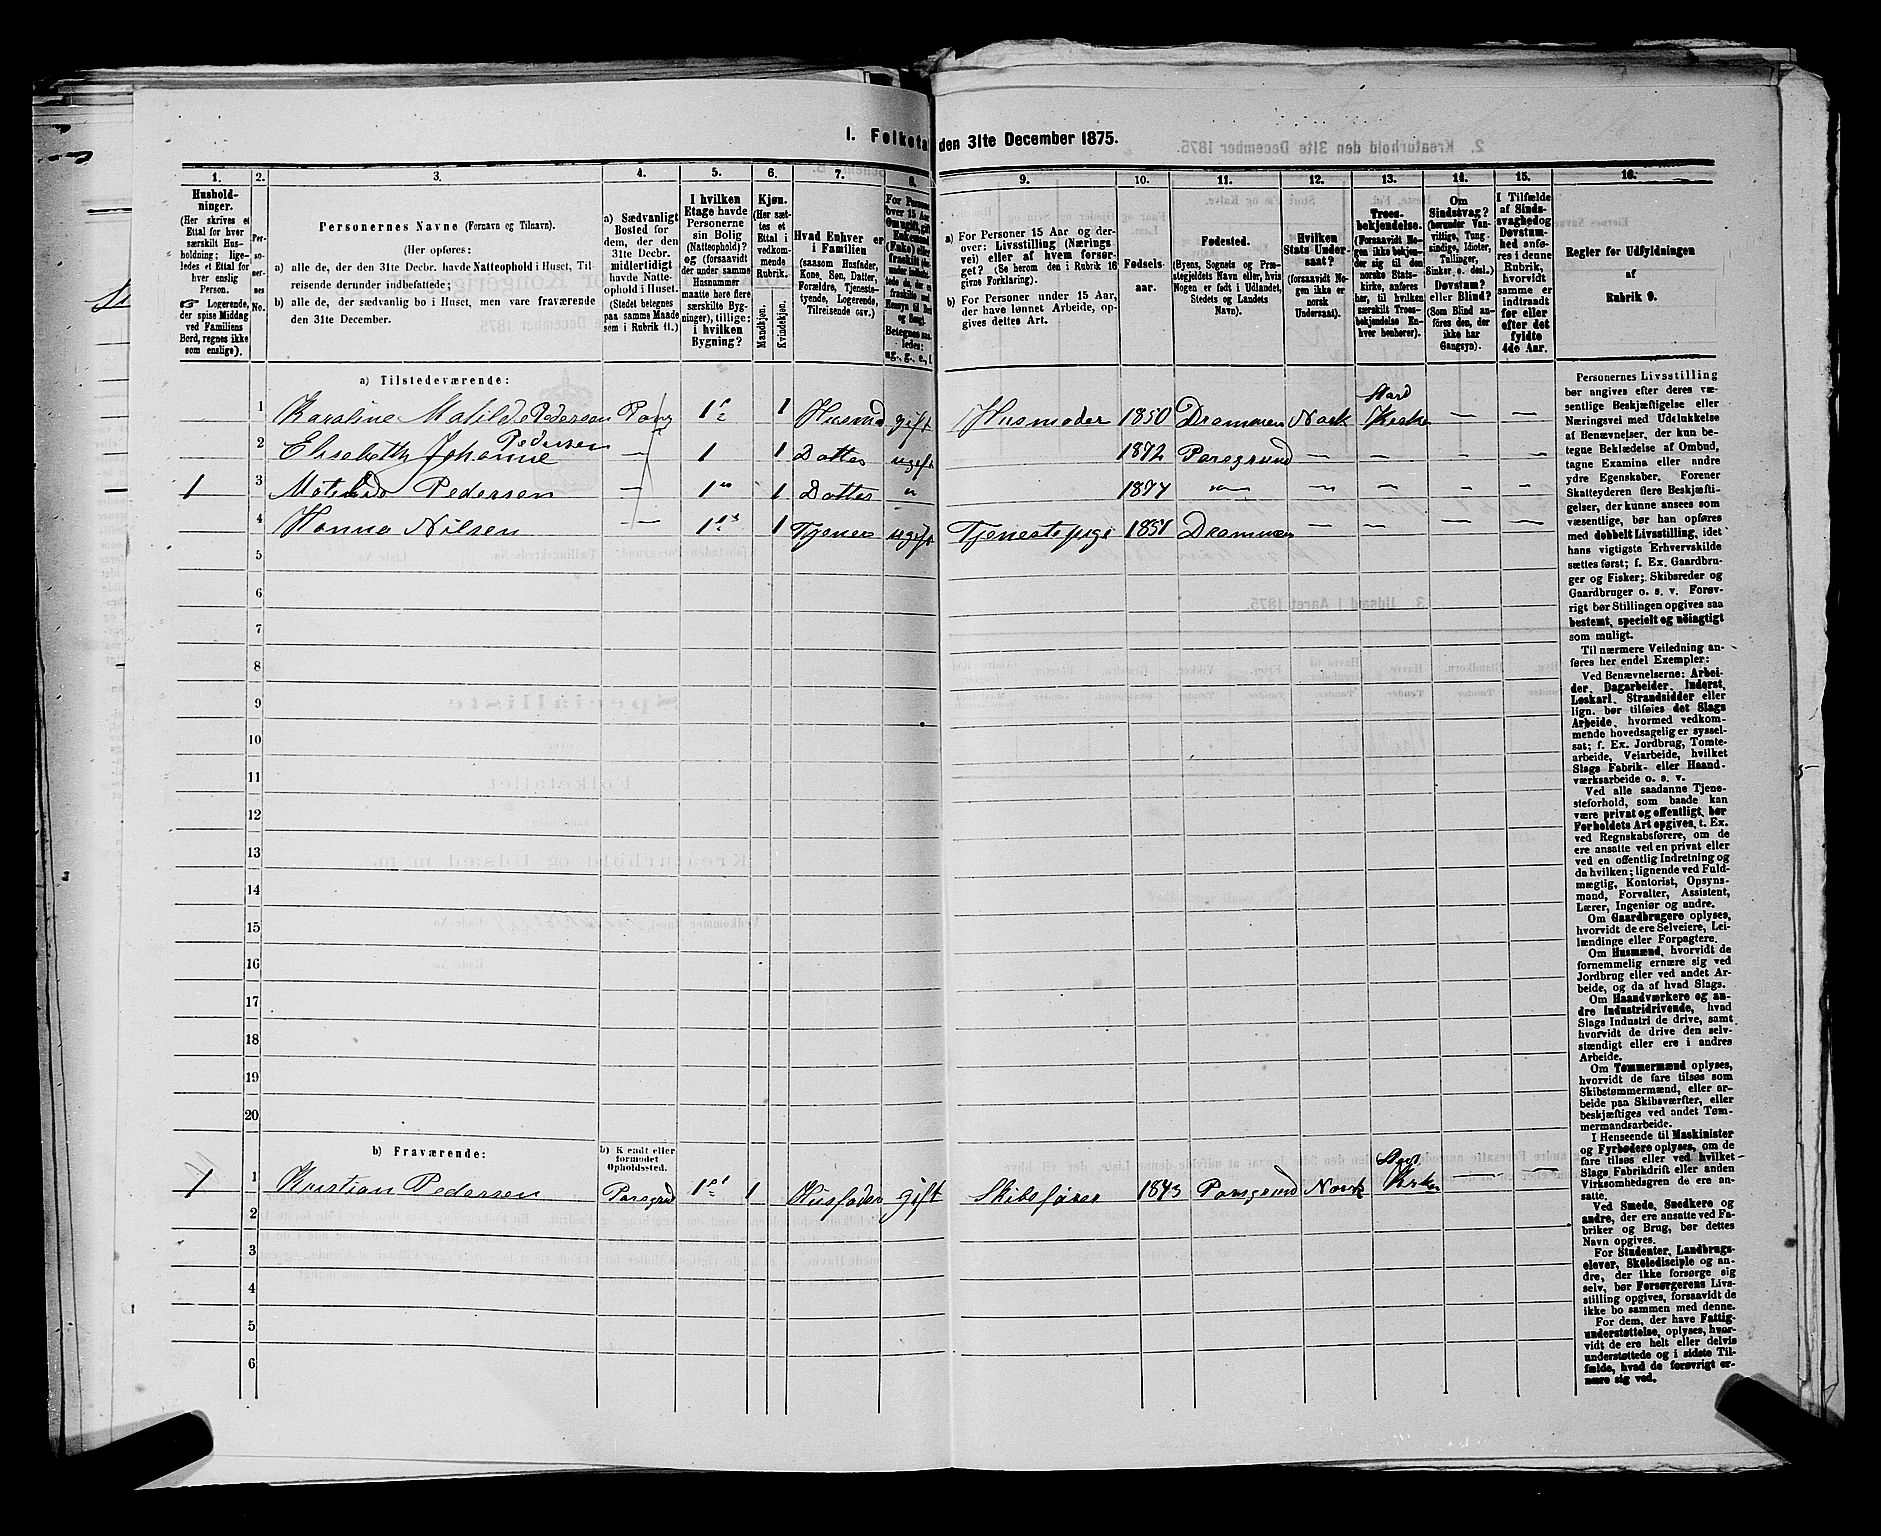 I. Folketa
den 31te December 1875.
1. 2. 3. 4. 5. 6. 7. 8. 9. 10. 11. 12. 13. 14. 15. 16.
Hushold-
ninger.
(Her skrives et
Ettal for hver
særskilt Hus-
holdning; lige-
ledes et Ettal for
hver enslig
Person.
Logerende,
der spise Middag
ved Familiens
Bord, regnes ikke
som enslige).
Per-
so-
ner-
nes
No.
Personernes Navne (Fornavn og Tilnavn).
(Her opføres:
a) alle de, der den 31te Decbr. havde Natteophold i Huset, Til-
reisende derunder indbefattede;
b) alle de, der sædvanlig bo i Huset, men vare fraværende
den 31te December.
a) Sædvanligt
Bosted for
dem, der den
31te Decbr.
midlertidigt
havde Natte-
ophold i Huset.
(Stedet betegnes
paa samme Maade
som i Rubrik 11.)
I hvilken
Etage havde
Personerne
sin Bolig
(Natteophold)?
og (forsaavidt
der under samme
Husnummer
maatte høre flere
særskilte Byg-
ninger), tillige:
i hvilken
Bygning?
Kjøn.
(Her sæt-
tes et
Ettal i
vedkom-
mende
Rubrik.
Mandkjøn.
Kvindekjøn.
Hvad Enhver er
i Familien
(saasom Husfader,
Kone, Søn, Datter,
Forældre, Tjeneste-
tyende, Logerende,
Tilreisende osv.)
a) For Personer 15 Aar og der-
over: Livsstilling (Nærings
vei) eller af hvem forsør-
get? (Se herom den i Rubrik 16
givne Forklaring).
b) For Personer under 15 Aar,
der have lønnet Arbeide, op-
gives dettes Art.
Fødsels-
aar.
Fødested.
(Byens, Sognets og Præ-
stegjeldets Navn eller, hvis
Nogen er født i Udlandet,
Stedets og Landets
Navn).
Hvilken
Stats Under-
saat?
(forsaavidt No-
gen ikke er
norsk
Undersaat).
Troes-
bekjendelse.
(Forsaavidt No-
gen ikke bekjen-
der sig til den
norske Stats-
kirke, anføres
her, til hvilken
særskilt Troes-
bekjendelse En-
hver henhører).
Om
Sindssvag?
(herunder Van-
vittige, Tung
sindige, Idioter,
Tullinger,
Sinker o. desl.)
Døvstum?
eller Blind?
(Som Blind an-
føres den, der
ikke har
Gangsyn).
I Tilfælde
af Sinds-
svaghed og
Døvstum-
hed anfø-
res i denne
Rubrik,
hvorvidt
samme er
indtraadt
før eller
efter det
fyldte
4de Aar.
Regler for Udfyldningen
af
Rubrik 9.
a) Tilstedeværende:
1 Karoline Matilde Pedersen Porsg 1 1 Husmod gift Husmoder 1850 Drammen Norsk Stats Kirke — —
2 Elisabeth Johanne Pedersen — 1 1 Datter ugift 1872 Porsgrund — — — —
1 3 Matilda Pedersen — 1 1 Datter " 1874 — — — — —
4 Hanna Nilsen — 1 1 Tjener ugift Tjenestepige 1851 Drammen — — — —
5
6
7
8
9
10
11
12
13
14
15
16
17
18
19
20
b) Fraværende:
b) Kjendt eller
formodet
Opholdssted.
1 1 Kristian Pedersen Porsgrund 1 1 Husfader gift Skibsfører 1843 Porsgrund Norsk Stats Kirke — —
2
3
4
5
6
Personernes Livsstilling
bør angives efter deres væ-
sentlige Beskjæftigelse eller
Næringsvei med Udelukkelse
af Benævnelser, der kun be-
tegne Beklædelse af Ombud,
tagne Examina eller andre
ydre Egenskaber. Forener
Skatteyderen flere Beskjæfti-
gelser, der kunne ansees som
væsentlige, bør han opføres
med dobbelt Livsstilling, idet
hans vigtigste Erhvervskilde
sættes først; f. Ex. Gaardbru-
ger og Fisker; Skibsreder og
Gaardbruger o. s. v. Forøv-
rigt bør Stillingen opgives saa
bestemt, specielt og nøiagtigt
som muligt.
Til nærmere Veiledning an-
føres her endel Exempler:
Ved Benævnelserne: Arbei-
der, Dagarbeider, Inderst,
Løskarl, Strandsidder eller
lign. bør tilføies det Slags
Arbeide, hvormed vedkom-
mende hovedsagelig er syssel-
sat; f. Ex. Jordbrug, Tomte-
arbeide, Veiarbeide, hvilket
Slags Fabrik- eller Haand-
værksarbeide o. s. v.
Ved alle saadanne Tjene-
steforhold, som baade kan
være privat og offentligt, bør
Forholdets Art opgives, t. Ex.
ved Regnskabsførere, om de
ere ansatte ved en privat eller
ved en offentlig Indretning og
da hvilken; lignende ved Fuld-
mægtig, Kontorist, Opsyns-
mand, Forvalter, Assistent,
Lærer, Ingeniør og andre.
Om Gaardbrugere oplyses,
hvorvidt de ere Selveiere, Lei-
lændinge eller Forpagtere.
Om Husmænd, hvorvidt de
fornemmelig ernære sig ved
Jordbrug eller ved andet Ar-
beide, og da af hvad Slags.
Om Haandværkere og an-
dre Industridrivende, hvad
Slags Industri de drive, samt
hvorvidt de drive den selv-
stændigt eller ere i andres
Arbeide.
Om Tømmermænd oplyses,
hvorvidt de fare tilsøs som
Skibstømmermænd, eller ar-
beide paa Skibsværfter, eller
beskjæftiges ved andet Tøm-
mermandsarbeide.
I Henseende til Maskinister
og Fyrbødere oplyses, om de
fare tilsøs eller ved hvilket-
Slags Fabrikdrift eller anden
Virksomhedsgren de ere an-
satte.
Ved Smede, Snedkere og
andre, der ere ansatte ved Fa-
briker og Brug, bør dettes
Navn opgives.
For Studenter, Landbrugs-
elever, Skoledisciple og an-
dre, der ikke forsørge sig
selv, bør Forsørgerens Livs-
stilling opgives, forsaavidt de
ikke bo sammen med denne.
For dem, der have Fattig-
understøttelse, oplyses, hvor-
vidt de ere helt eller delvis
understøttede og i sidste Til-
fælde, hvad de forøvrigt er-
nære sig ved.